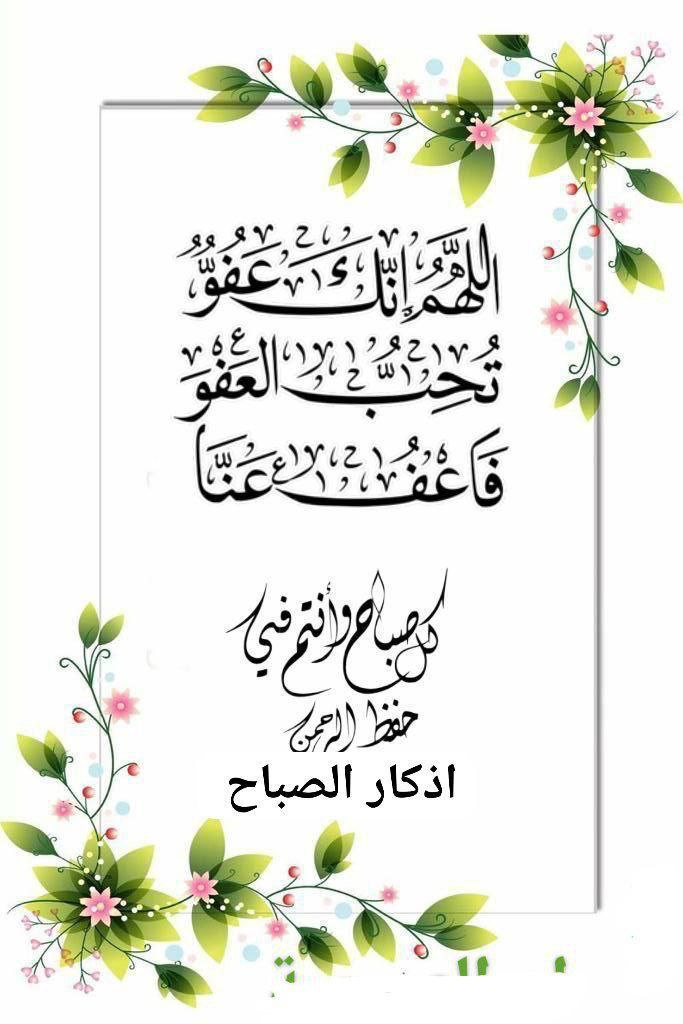 اللَّهُمَّ إِنَّكَ عَفُوٌّ
تُحِبُّ العَفْوَ
فَاعْفُ عَنَّا
كل صباح وأنتم في
حفظ الرحمن
اذكار الصباح